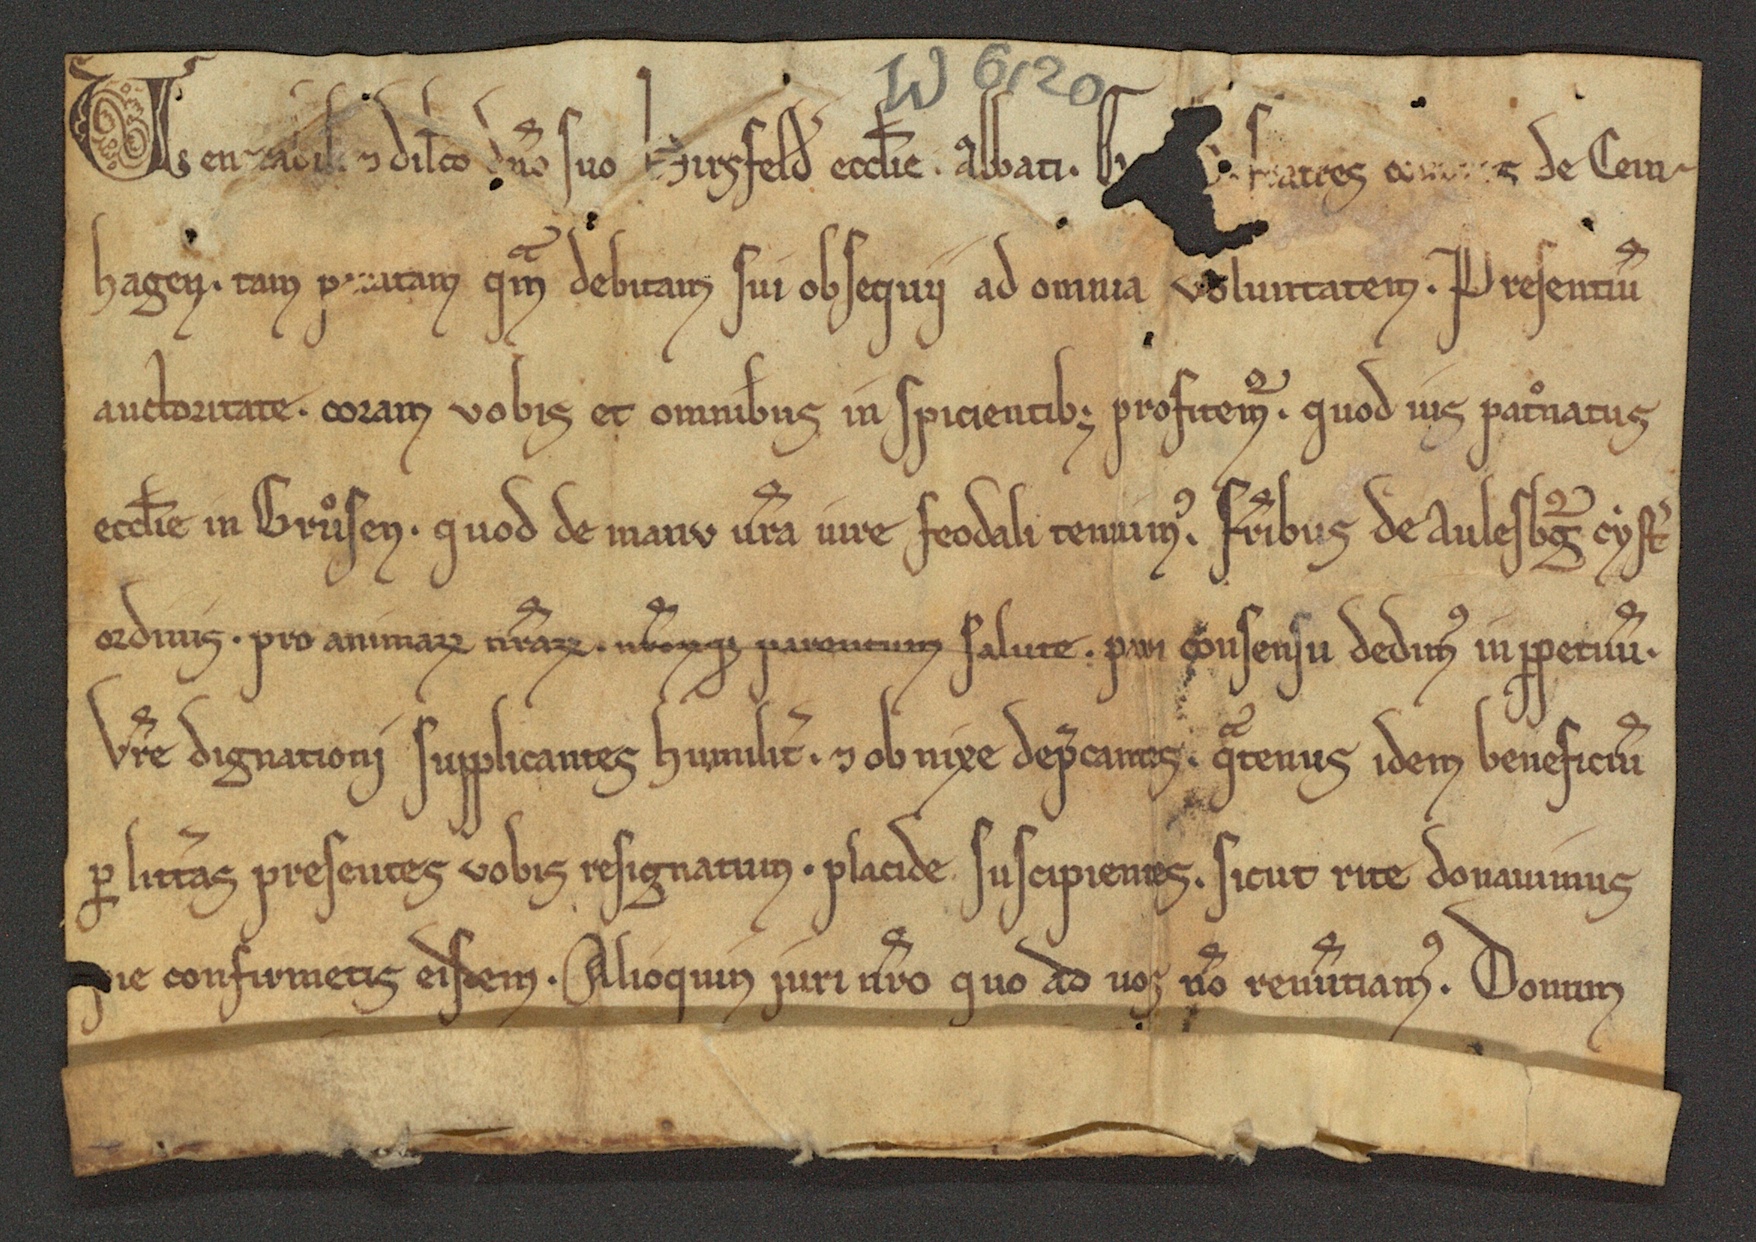 W 6120
Ven[er]abili ⁊ dilc̄o dn̄o suo Hirsfeld̄ eccl̄ie. Abbati. fratres comites de Cein-
hagen. tam paratam qᵃm debitam sui obsequij ad omnia voluntatem. Presentiū
auctoritate. coram vobis et omnibus in spicientibꝫ profitemꝰ. quod ius patͦnatus
eccl̄ie in Gruͦsen. quod de manv ur̄a iure feodali tenuimꝰ. fr̄ibus de Aulesbꝰg cyst̄
ordinis. pro animaꝝ nr̄aꝝ. nr̄orūqꝫ parentum salute. pari consensu dedimꝰ in ꝑpetuū.
Vr̄e dignationj supplicantes humilit̄. ⁊ ob nixe dep̄cantes. qᵃtenus idem beneficiū
ꝑ litt̄as presentes vobis resignatum. placide suscipientes. sicut rite donauimus
pie confirmetis eisdem. Alioquin juri nr̄o quo ad uos nō renūtiamꝰ. Donum